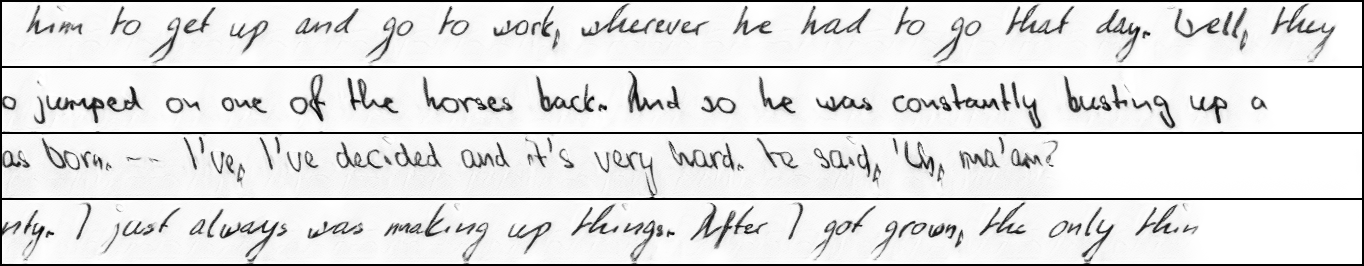 him to get up and go to work, wherever he had to go that day. Well, they
o jumped on one of the horses back. And so he was constantly busting up a
as born. -- I've, I've decided and it's very hard. He said, 'Uh, ma'am?
nty. I just always was making up things. After I got grown, the only thin